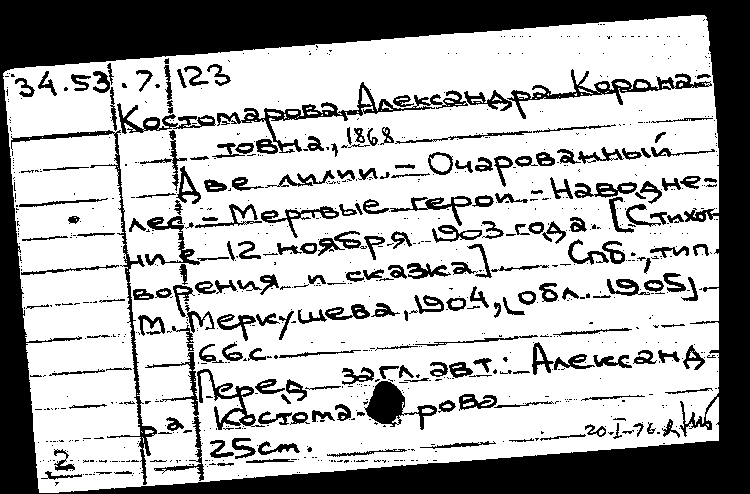 34.53.7.123
Костомарова, Александра Корона-
товна, 1868
Две лилии. - Очарованный
лес. - Мертвые герои. - Наводне-
ние 12 ноября 1903 года. [Стихот-
ворения и сказка]. Спб., тип.
М. Меркушева, 1904, [обл. 1905].
66 с.
Перед загл. авт.: Александ-
ра Костомарова
25 см.
20.I-76.
2